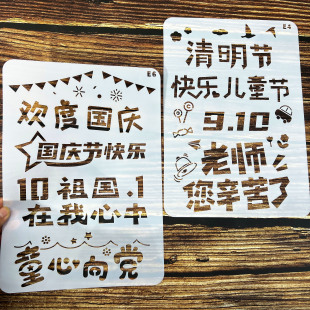 E6
欢度国庆
国庆节快乐
10 祖国.1
在我心中
童心向党
E4
清明节
快乐儿童节
9.10
老师
您辛苦了